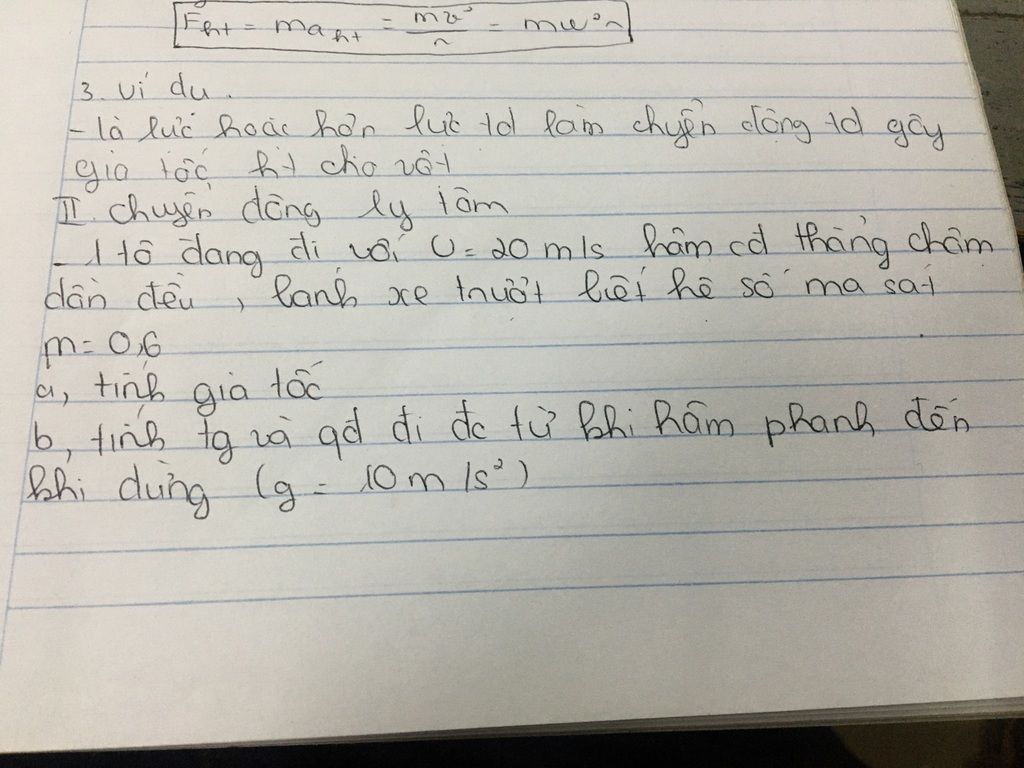 Fht = maht = mv²/r = mω²r
3. Ví dụ.
- là lực hoặc hợp lực td làm chuyển động td gây
gia tốc ht cho vật
II. chuyển động ly tâm
- 1 tô đang đi với v = 20 m/s hãm cđ thẳng chậm
dần đều, bánh xe trượt biết hệ số ma sát
m = 0,6
a, tính gia tốc
b, tính tg và qđ đi đc từ khi hãm phanh đến
khi dừng (g = 10 m/s²)